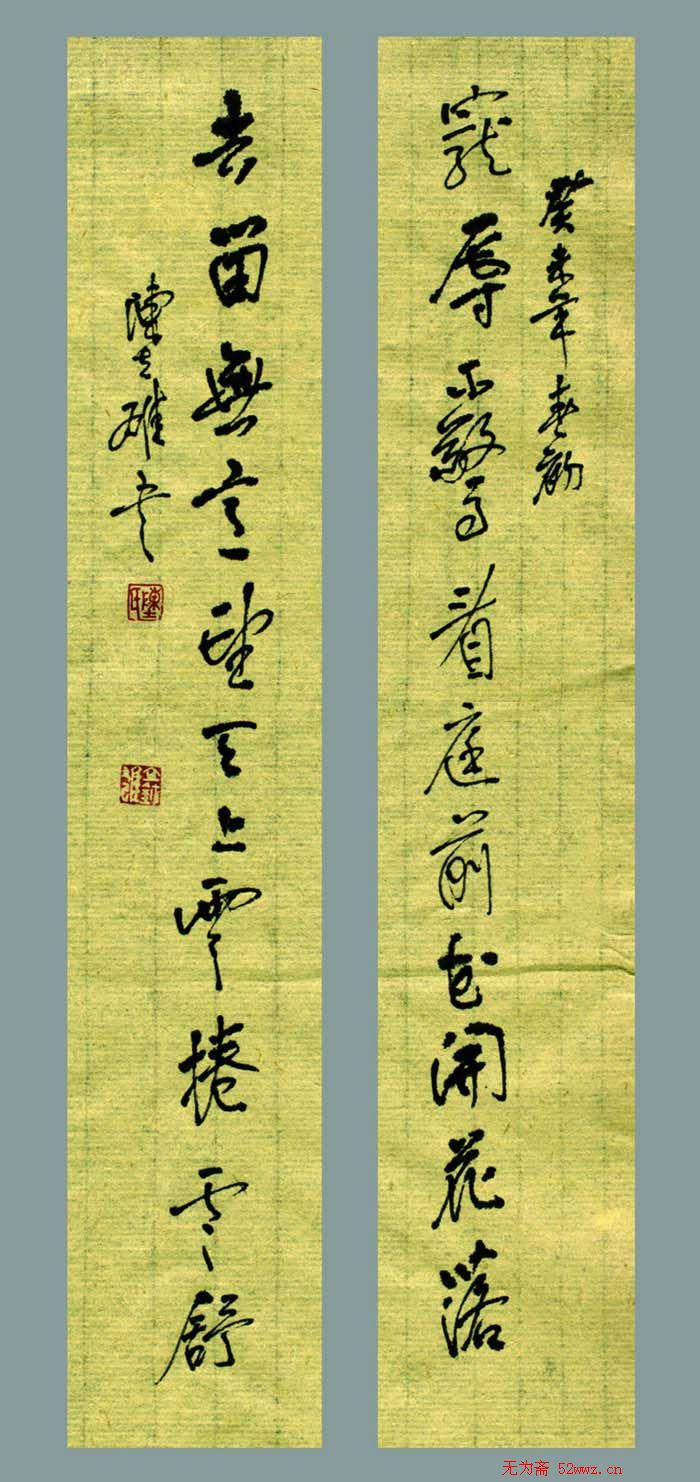 癸未年春
寵辱不驚看庭前花開花落
去留無意望天上雲捲雲舒
陳雄書
陳氏
无为斋 52wwz.cn